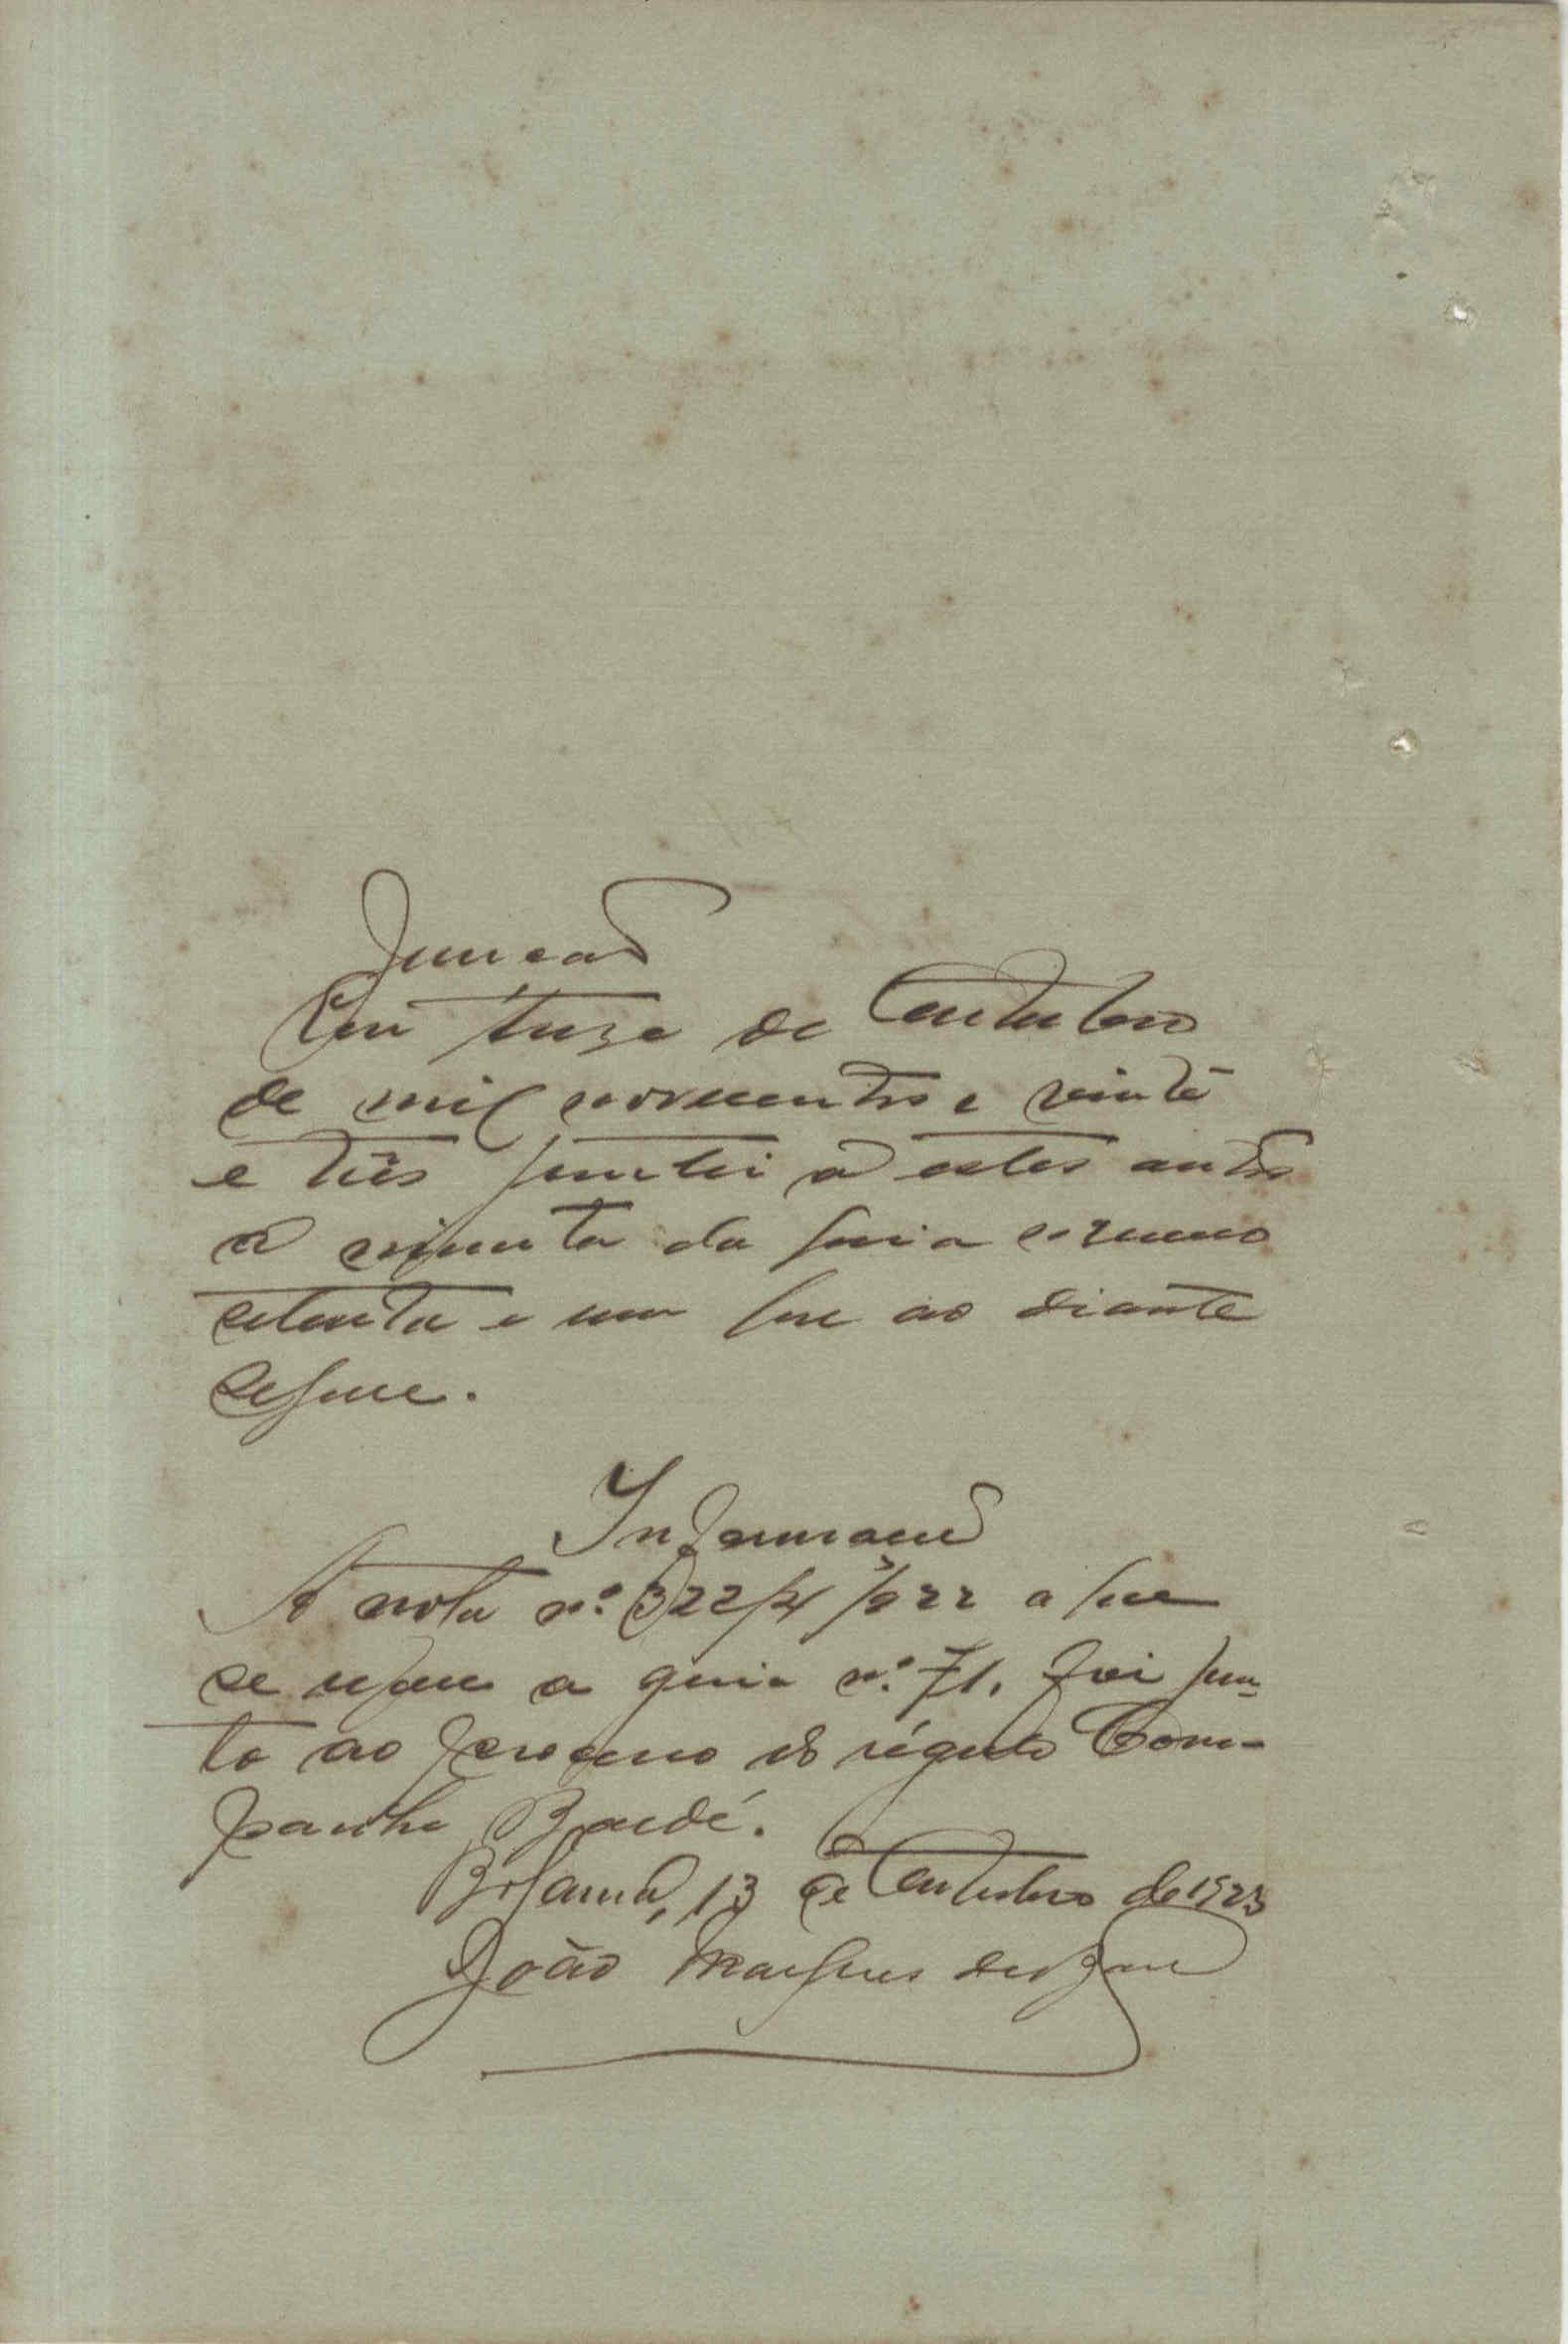 Juncão
Em treze de Outubro
de mil novecentos e vinte
e três juntei a estes autos
a minuta da guia numero
setenta e um que ao diante
segue.
Informação
A nota nº 322/4 /922 a que
se refere a guia nº 71, foi jun-
to ao processo do régulo Com-
panhe Baldé.
Bolama, 13 de Outubro de 1923
João Marques de